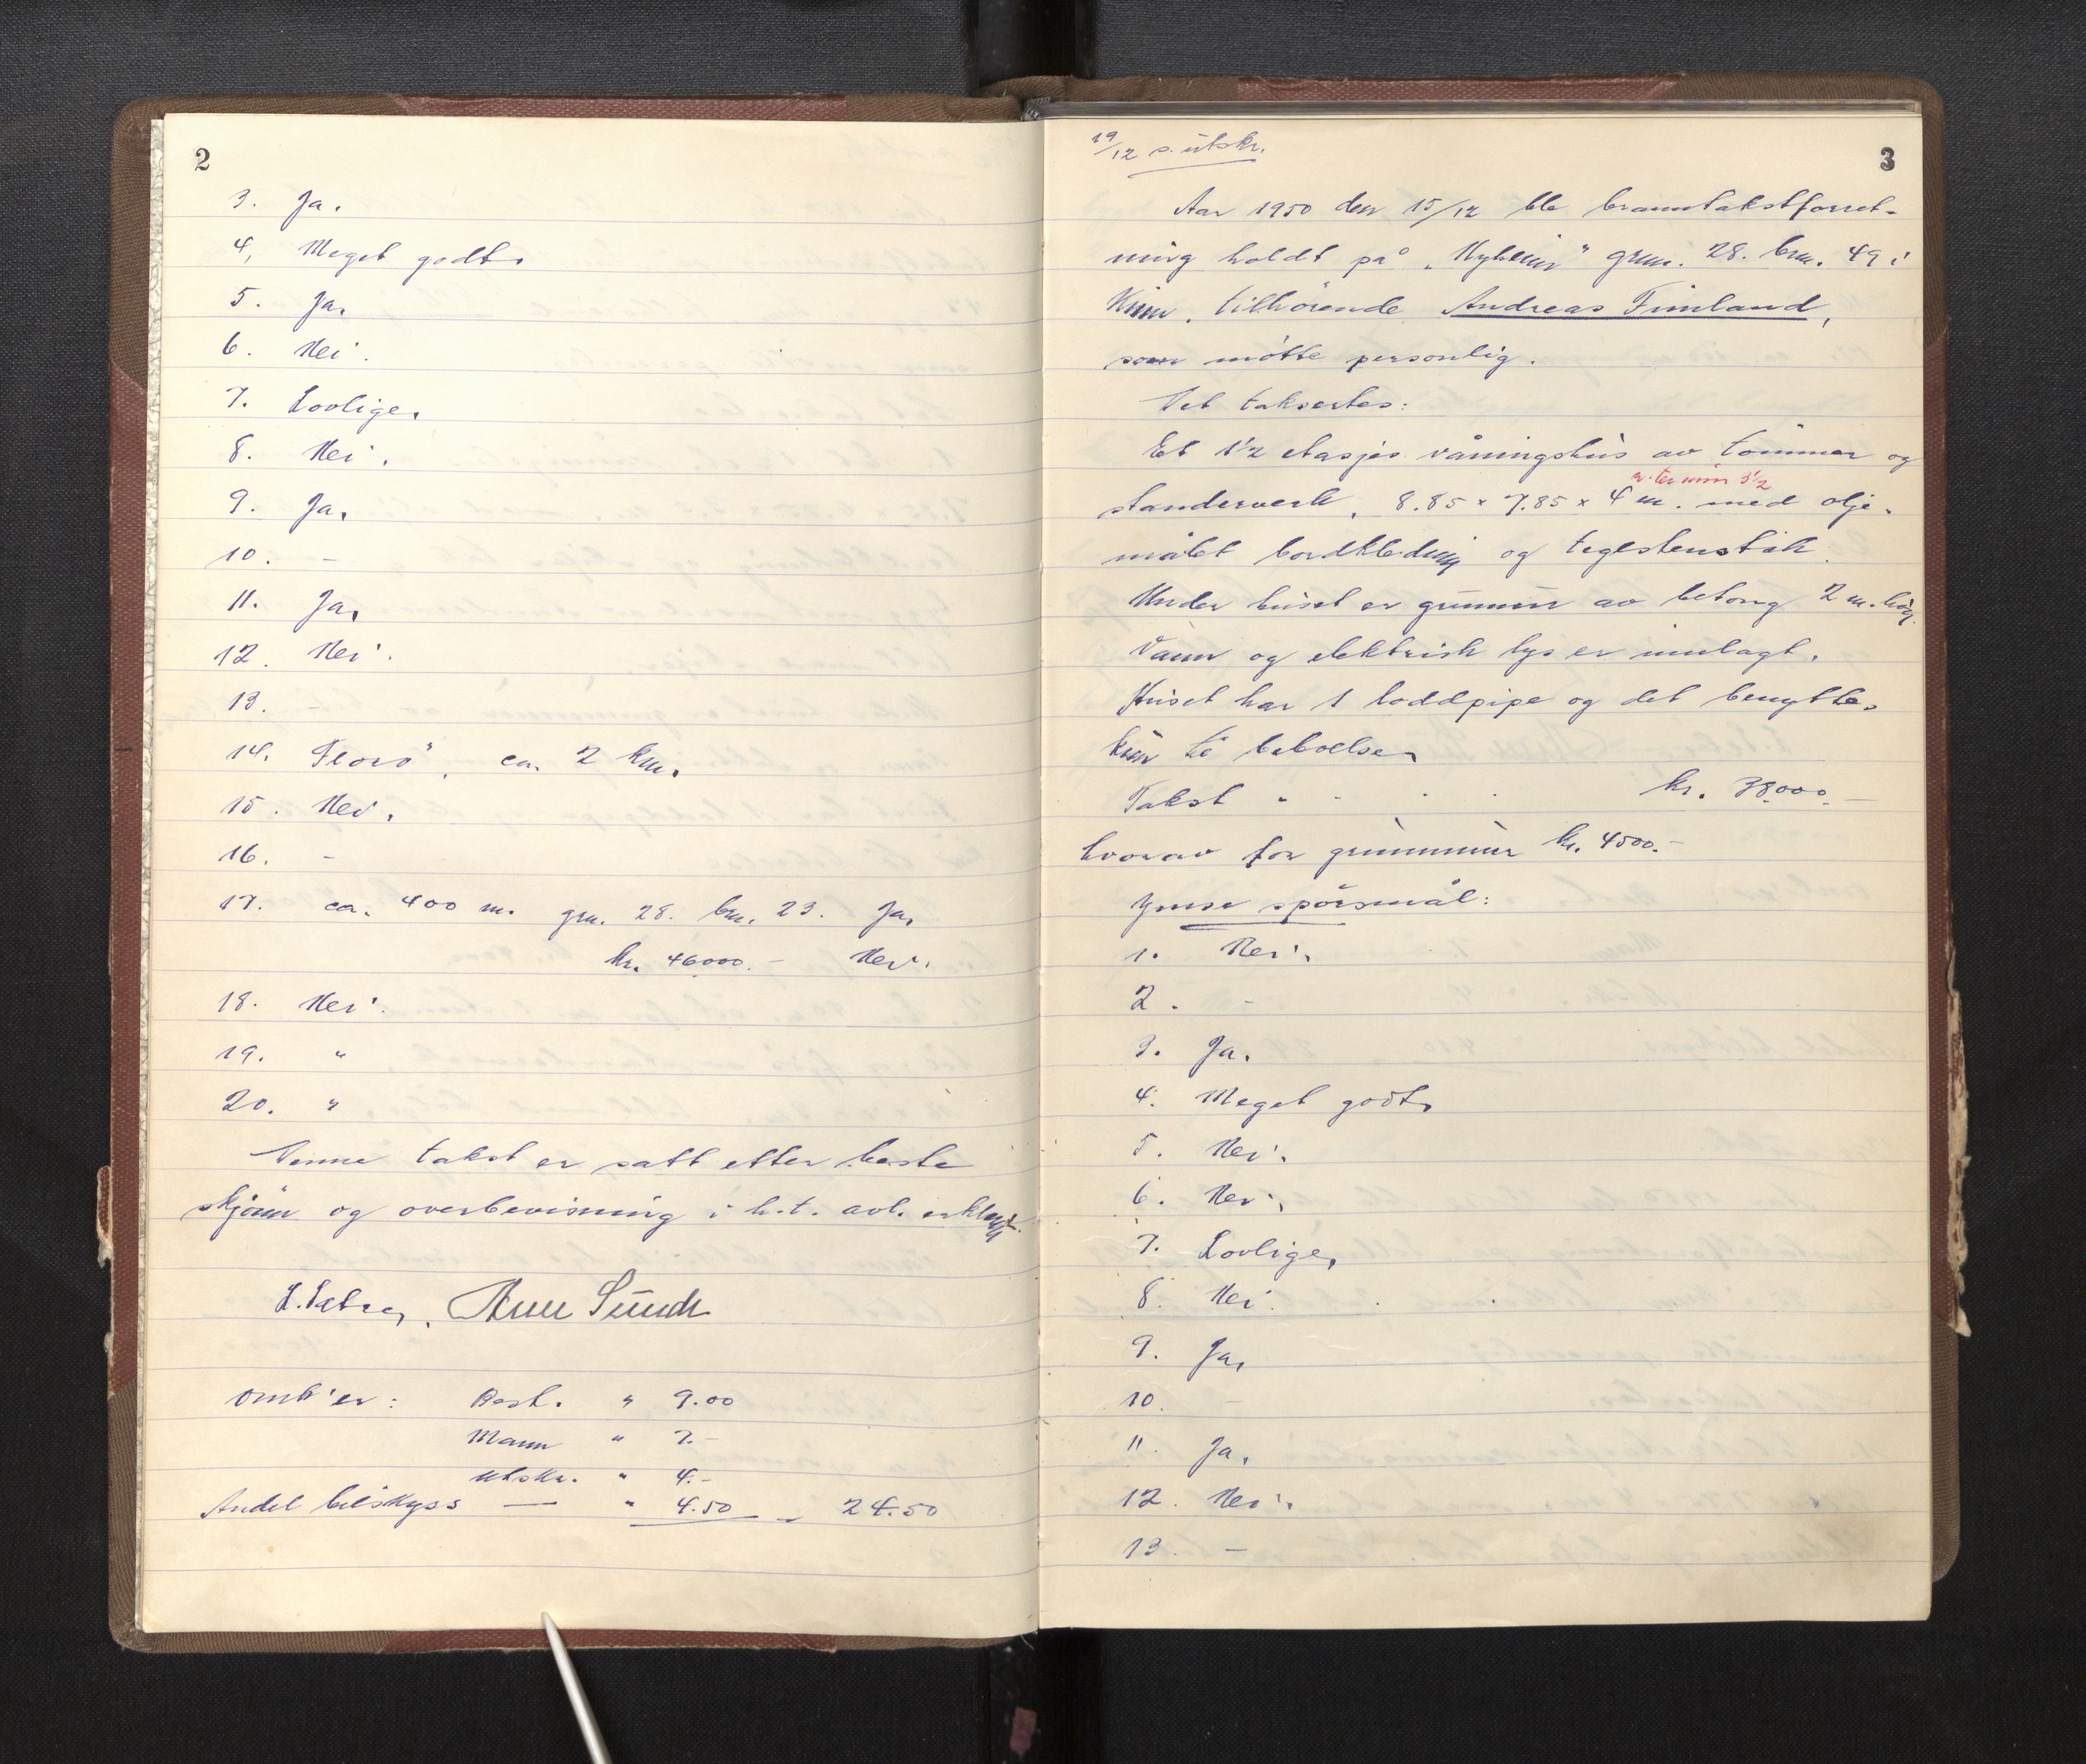 2
3. Ja.
4. Meget godt.
5. Ja.
6. Nei.
7. Lovlige.
8. Nei.
9. Ja.
10. -
11. Ja.
12. Nei.
13.
14. Florö, ca. 2 km.
15. Nei.
16. -
17. ca. 400 m. grn. 28. brn. 23. Ja.
kr. 46000.- Nei.
18. Nei.
19. "
20. "
Denne takst er satt etter beste
skjönn og overbevisning i h.t. avl. erklæg.
Omk'er: Best. " 9.00
Mann " 7.-
Utskr. " 4.-
Andel bilskyss — " 4.50 = 24.50
3
19/12 s. utskr.
Aar 1950 den 15/12 ble branntakstforret-
ning holdt på „Nyheim" grn. 28. brn. 49 i
Kinn, tilhörende Andreas Fimland,
som mötte personlig.
Det taksertes:
Et 1 1/2 etasjes våningshus av tömmer og
3 1/2
standerverk, 8.85 x 7.85 x 4 m. med olje-
målet bordkledning og teglstenstak.
Under huset er grunnmur av betong 2 m. höy.
Vann og elektrisk lys er innlagt.
Huset har 1 loddpipe og det benyttes
kun til beboelse.
Takst " - - - kr. 38000.-
hvorav for grunnmur kr. 4500.-
Ymse spörsmål:
1. Nei.
2. -
3. Ja.
4. Meget godt.
5. Nei.
6. Nei.
7. Lovlige.
8. Nei.
9. Ja.
10. -
11. Ja.
12. Nei.
13. -